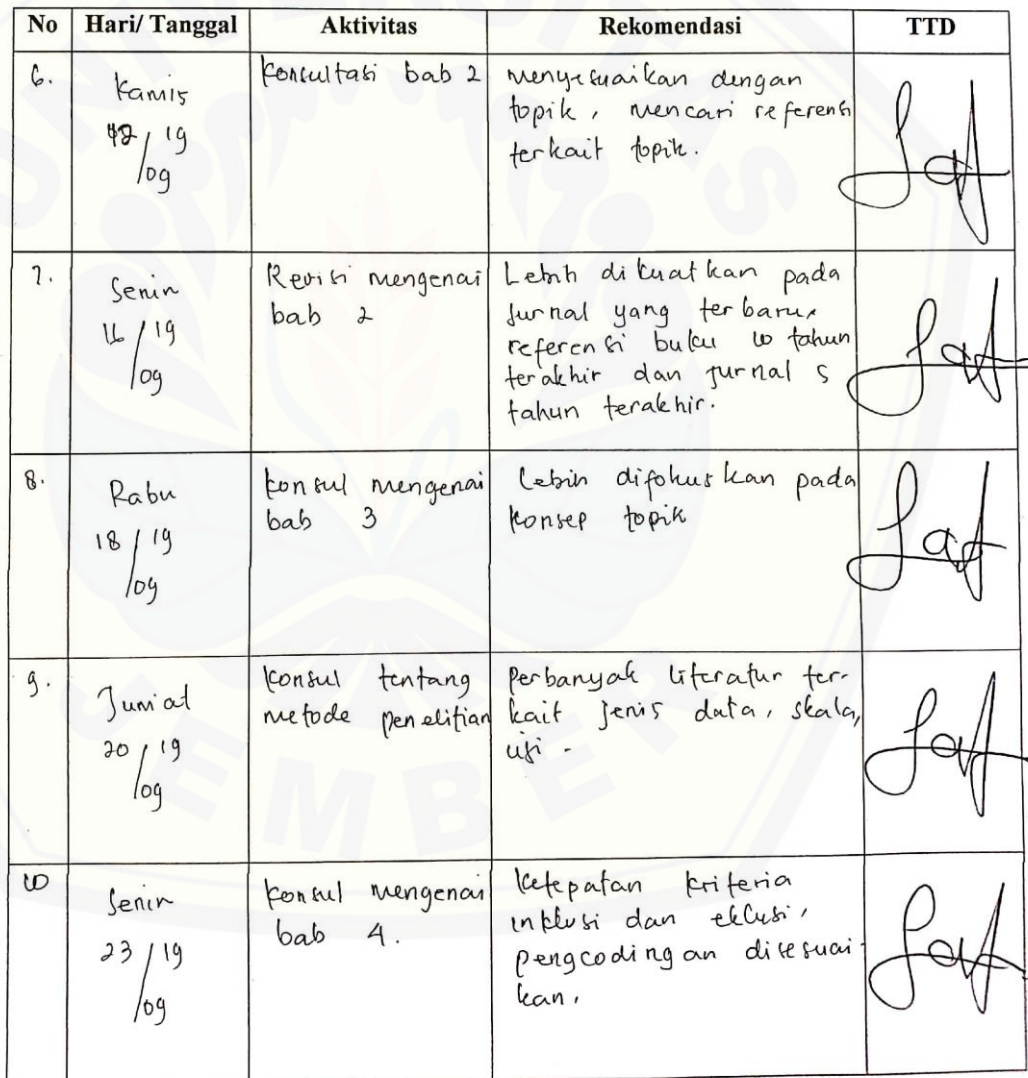 No Hari/ Tanggal Aktivitas Rekomendasi TTD
6. Kamis 12/19 /09
Konsultasi bab 2
menyesuaikan dengan
topik, mencari referensi
terkait topik.
7. Senin 16/19 /09
Revisi mengenai
bab 2
Lebih dikuatkan pada
Jurnal yang terbaru,
referensi buku 10 tahun
terakhir dan jurnal 5
tahun terakhir.
8. Rabu 18/19 /09
Konsul mengenai
bab 3
Lebih difokuskan pada
konsep topik
9. Jum'at 20/19 /09
Konsul tentang
metode penelitian
Perbanyak literatur ter-
kait jenis data, skala,
uji.
10 Senin 23/19 /09
Konsul mengenai
bab 4.
Ketepatan kriteria
inklusi dan eklusi,
pengcodingan disesuai
kan.
UNIVERSITAS
JEMBER